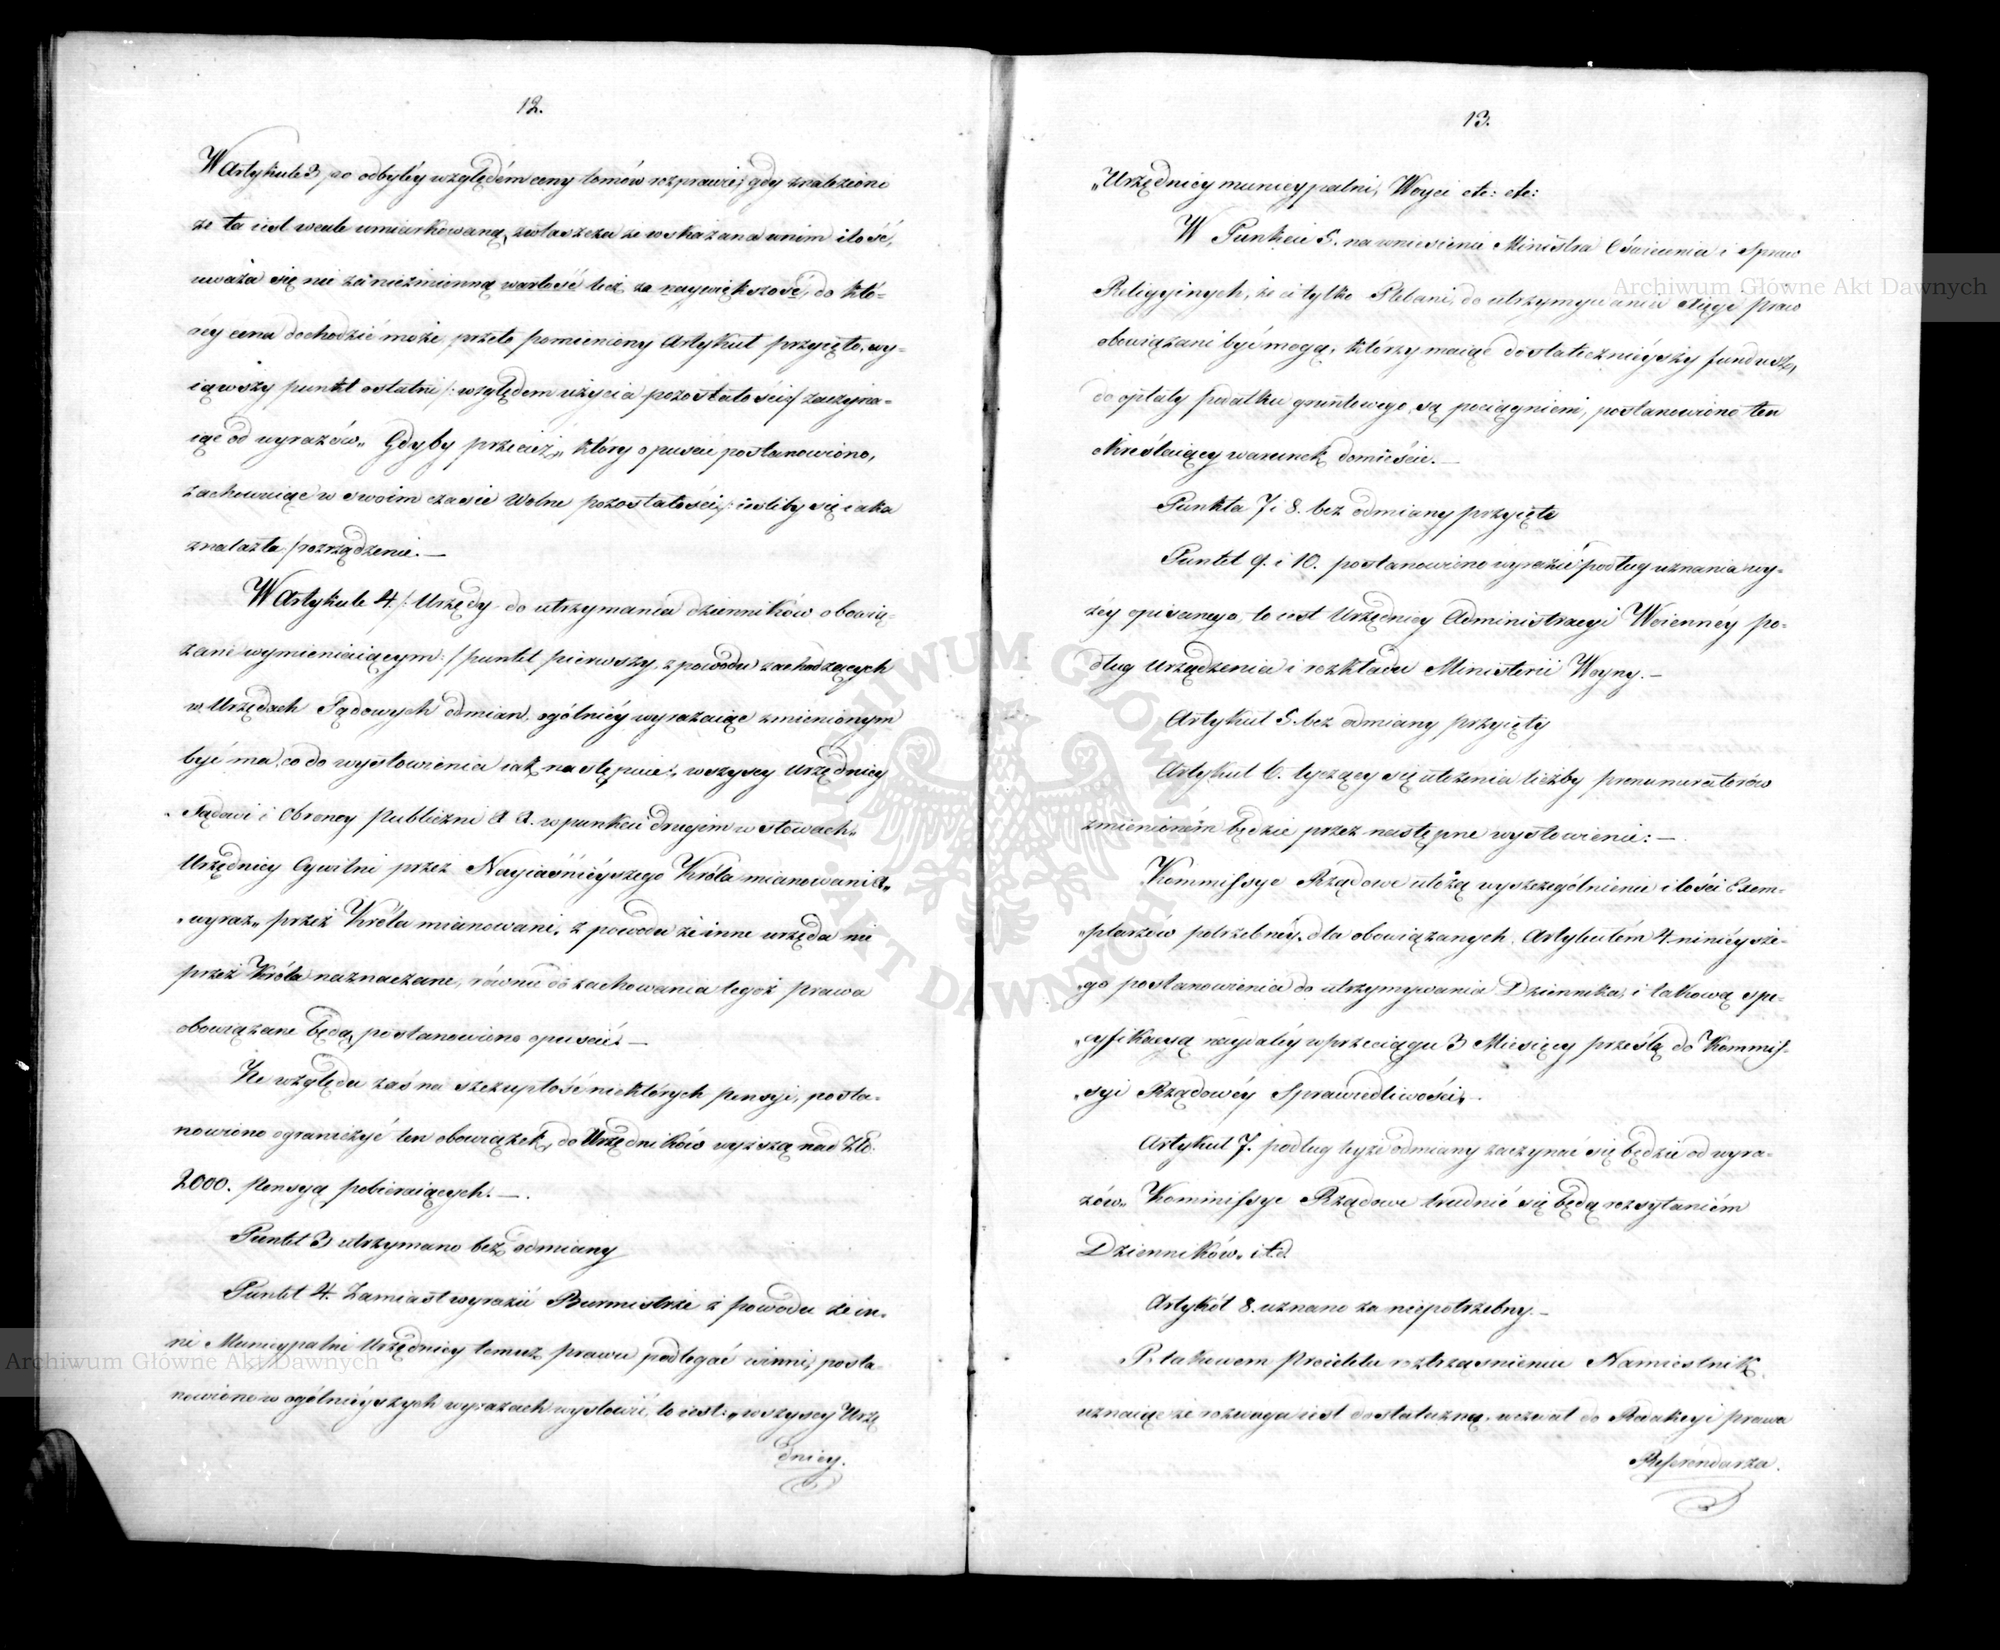 12.
W Artykule 3 po odbytéy względém ceny tomów rozprawie, gdy znaleziono
że ta iest wcale umiarkowaną, zwłaszcza że wskazana w nim ilość,
uważa się nie za niezmienną wartość lecz za naywiększość, do któ-
réy cena dochodzić może, przeto pomieniony Artykuł przyięto, wy-
iąwszy punkt ostatni /: względem użycia pozostałości :/ zaczyna-
iąc od wyrazów „Gdyby przecież„ który opuścić postanowiono,
zachowuiąc w swoim czasie Wolne pozostałości /: iesliby się iaka
znalazła :/ rozrządzenie. —
W Artykule 4. /: Urzędy do utrzymania dzienników obowią-
zane wymieniaiącym :/ punkt pierwszy, z powodu zachodzących
w Urzędach Sądowych odmian, ogólniéy wyrażaiąc zmienionym
być ma, co do wysłowienia iak następuie: „wszyscy Urzędnicy
„Sądowi i Obroncy Publiczni & &. w punkcie drugim w słowach„
Urzędnicy Cywilni przez Nayiaśniéyszego Króla mianowani &„
„wyraz„ przez Króla mianowani, z powodu że inne urzęda nie
przez Króla naznaczane, równie do zachowania tegoż prawa
obowiązane będą, postanowiono opuścić. —
Ze względu zaś na szczupłość niektórych pensyi, posta-
nowiono ograniczyć ten obowiązek, do Urzędników wyższą nad Złp.
2000. Pensyą pobieraiących. —.
Punkt 3 utrzymano bez odmiany
Punkt 4. Zamiast wyrazu Burmistrze z powodu że in-
ni Municypalni Urzędnicy temuż prawu podlegać winni, posta-
nowiono w ogólniéyszych wyrazach wysłowić, to iest: „wszyscy Urzę
dnicy.
13.
„Urzędnicy municypalni, Woyci etc: etc:
W Punkcie 5. na wniesienie Ministra Oświecenia i Spraw
Religyinych, że ci tylko Plebani, do utrzymywania Xięgi praw
obowiązani być mogą, którzy maiąc dostatecznieyszy fundusz,
do opłaty podatku gruntowego są pociągnieni, postanowiono ten
określaiący warunek domieścić. —
Punkta 7 i 8. bez odmiany przyięte
Punkt 9. i 10. postanowiono wyrazić podług uznania wy-
żéy opisanego, to iest Urzędnicy Administracyi Woiennéy po-
dług urządzenia i rozkładu Ministerii Woyny. —
Artykuł 5. bez odmiany przyięty
Artykuł 6. tyczący się ułożenia liczby prenumeratorów
zmienioném będzie przez następne wysłowienie: —
„Kommissye Rządowe ułożą wyszczególnienie ilości Exem-
„plarzów potrzebnéy, dla obowiązanych, Artykułem 4. ninieysze-
„go postanowienia do utrzymywania Dziennika, i takową spe-
„cyfikacyą naydaléy w przeciągu 3 Miesięcy prześlą do Kommis-
„syi Rządowéy Sprawiedliwości„ —.
Artykuł 7. podług teyże odmiany zaczynać się będzie od wyra-
zów„ Kommissye Rządowe trudnić się będą rozsyłaniém
Dzienników„ i t.d.
Artykół 8. uznano za niepotrzebny. —
Po takowem Proiektu roztrząśnieniu Namiestnik,
uznaiąc że rozwaga iest dostateczną, wezwał do Redakcyi prawa
Referendarza.
Archiwum Główne Akt Dawnych
Archiwum Główne Akt Dawnych
ARCHIWUM GŁÓWNE AKT DAWNYCH